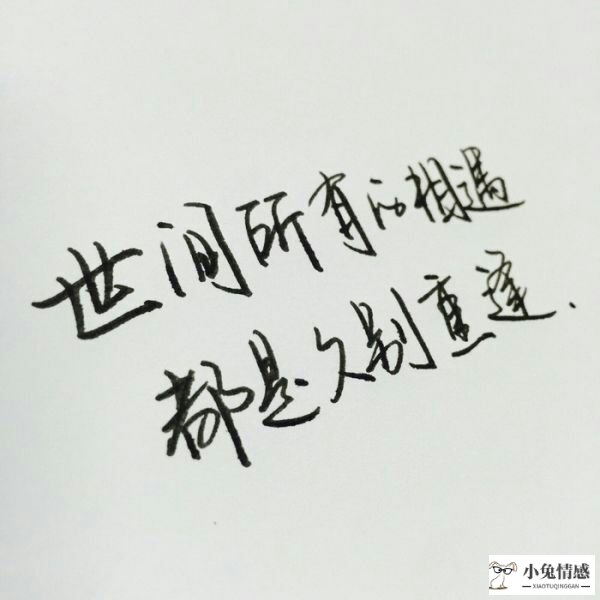 世间所有的相遇
都是久别重逢.
小兔情感
XIAOTUQINGGAN